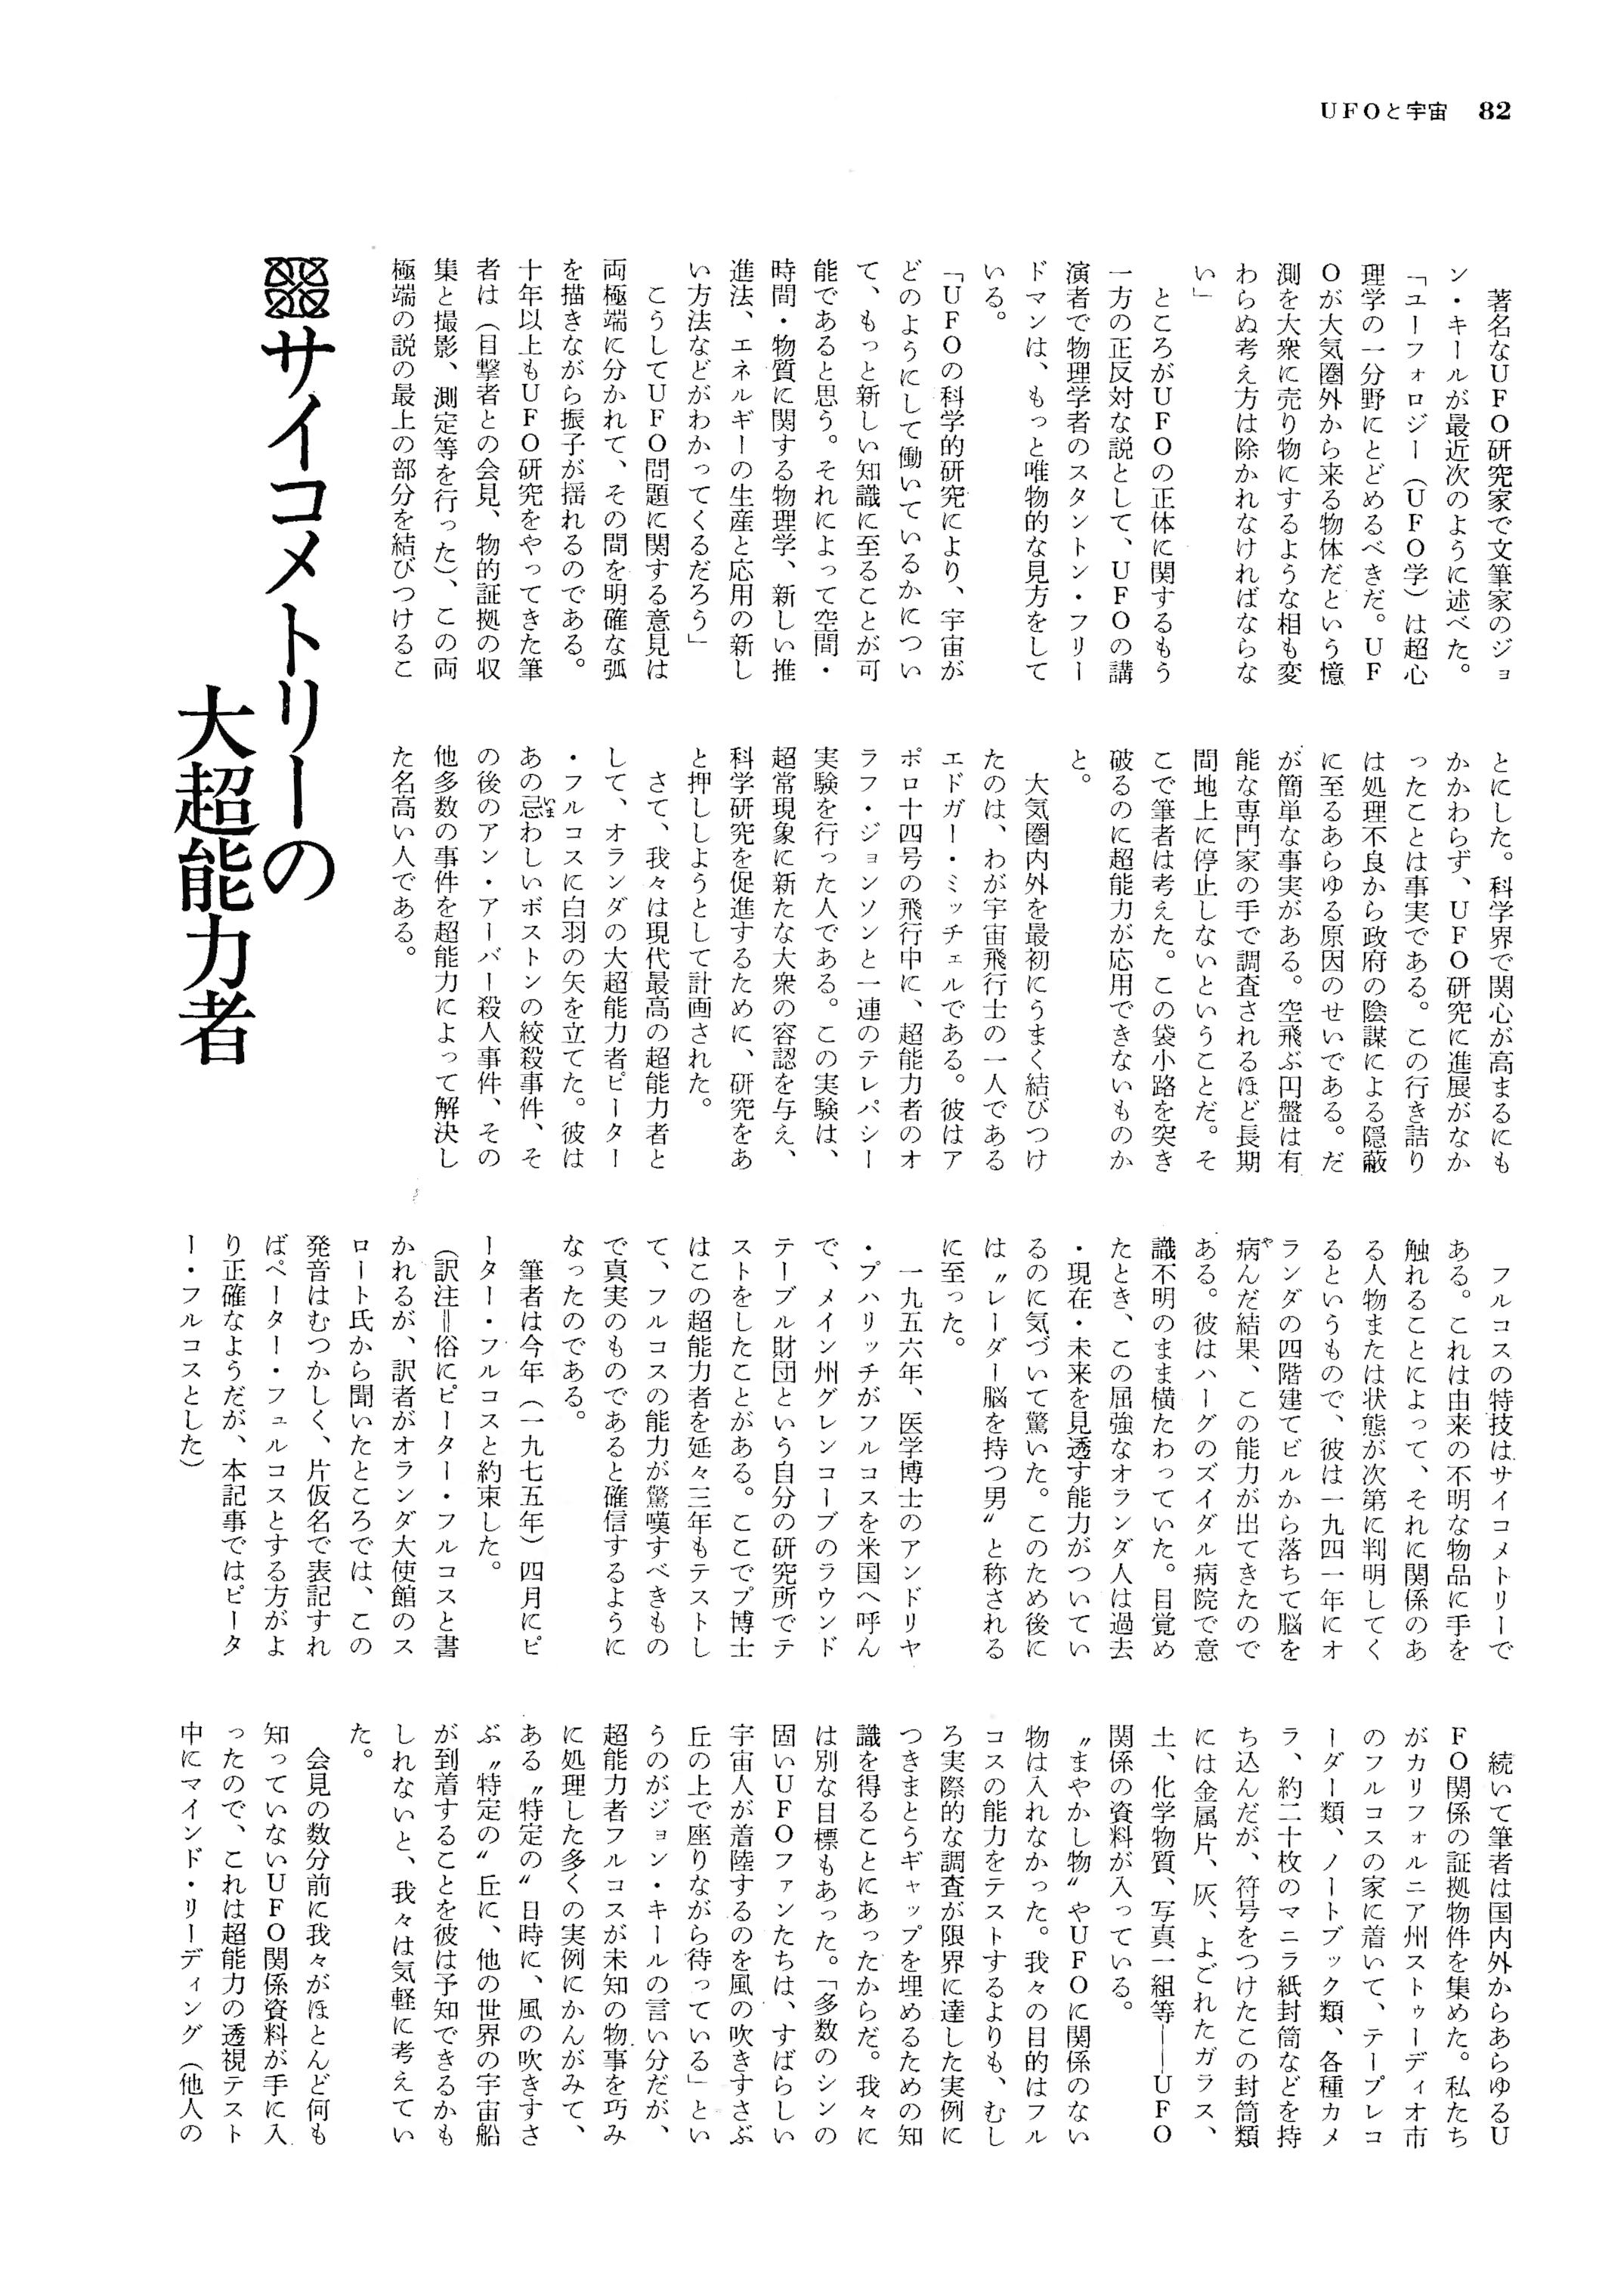 UFOと宇宙 82
著名なUFO研究家で文筆家のジョ
ン・キールが最近次のように述べた。
「ユーフォロジー（UFO学）は超心
理学の一分野にとどめるべきだ。UF
Oが大気圏外から来る物体だという憶
測を大衆に売り物にするような相も変
わらぬ考え方は除かれなければならな
い」
ところがUFOの正体に関するもう
一方の正反対な説として、UFOの講
演者で物理学者のスタントン・フリー
ドマンは、もっと唯物的な見方をして
いる。
「UFOの科学的研究により、宇宙が
どのようにして働いているかについ
て、もっと新しい知識に至ることが可
能であると思う。それによって空間・
時間・物質に関する物理学、新しい推
進法、エネルギーの生産と応用の新し
い方法などがわかってくるだろう」
こうしてUFO問題に関する意見は
両極端に分かれて、その間を明確な弧
を描きながら振子が揺れるのである。
十年以上もUFO研究をやってきた筆
者は（目撃者との会見、物的証拠の収
集と撮影、測定等を行った）、この両
極端の説の最上の部分を結びつけるこ
サイコメトリーの
大超能力者
とにした。科学界で関心が高まるにも
かかわらず、UFO研究に進展がなか
ったことは事実である。この行き詰り
は処理不良から政府の陰謀による隠蔽
に至るあらゆる原因のせいである。だ
が簡単な事実がある。空飛ぶ円盤は有
能な専門家の手で調査されるほど長期
間地上に停止しないということだ。そ
こで筆者は考えた。この袋小路を突き
破るのに超能力が応用できないものか
と。
大気圏内外を最初にうまく結びつけ
たのは、わが宇宙飛行士の一人である
エドガー・ミッチェルである。彼はア
ポロ十四号の飛行中に、超能力者のオ
ラフ・ジョンソンと一連のテレパシー
実験を行った人である。この実験は、
超常現象に新たな大衆の容認を与え、
科学研究を促進するために、研究をあ
と押ししようとして計画された。
さて、我々は現代最高の超能力者と
して、オランダの大超能力者ピーター
・フルコスに白羽の矢を立てた。彼は
あの忌いまわしいボストンの絞殺事件、そ
の後のアン・アーバー殺人事件、その
他多数の事件を超能力によって解決し
た名高い人である。
フルコスの特技はサイコメトリーで
ある。これは由来の不明な物品に手を
触れることによって、それに関係のあ
る人物または状態が次第に判明してく
るというもので、彼は一九四一年にオ
ランダの四階建てビルから落ちて脳を
病やんだ結果、この能力が出てきたので
ある。彼はハーグのズイダル病院で意
識不明のまま横たわっていた。目覚め
たとき、この屈強なオランダ人は過去
・現在・未来を見透す能力がついてい
るのに気づいて驚いた。このため後に
は〝レーダー脳を持つ男〟と称される
に至った。
一九五六年、医学博士のアンドリヤ
・プハリッチがフルコスを米国へ呼ん
で、メイン州グレンコーブのラウンド
テーブル財団という自分の研究所でテ
ストをしたことがある。ここでプ博士
はこの超能力者を延々三年もテストし
て、フルコスの能力が驚嘆すべきもの
で真実のものであると確信するように
なったのである。
筆者は今年（一九七五年）四月にピ
ーター・フルコスと約束した。
（訳注＝俗にピーター・フルコスと書
かれるが、訳者がオランダ大使館のス
ロート氏から聞いたところでは、この
発音はむつかしく、片仮名で表記すれ
ばペーター・フュルコスとする方がよ
り正確なようだが、本記事ではピータ
ー・フルコスとした）
続いて筆者は国内外からあらゆるU
FO関係の証拠物件を集めた。私たち
がカリフォルニア州ストゥーディオ市
のフルコスの家に着いて、テープレコ
ーダー類、ノートブック類、各種カメ
ラ、約二十枚のマニラ紙封筒などを持
ち込んだが、符号をつけたこの封筒類
には金属片、灰、よごれたガラス、
土、化学物質、写真一組等――UFO
関係の資料が入っている。
〝まやかし物〟やUFOに関係のない
物は入れなかった。我々の目的はフル
コスの能力をテストするよりも、むし
ろ実際的な調査が限界に達した実例に
つきまとうギャップを埋めるための知
識を得ることにあったからだ。我々に
は別な目標もあった。「多数のシンの
固いUFOファンたちは、すばらしい
宇宙人が着陸するのを風の吹きすさぶ
丘の上で座りながら待っている」とい
うのがジョン・キールの言い分だが、
超能力者フルコスが未知の物事を巧み
に処理した多くの実例にかんがみて、
ある〝特定の〟日時に、風の吹きすさ
ぶ〝特定の〟丘に、他の世界の宇宙船
が到着することを彼は予知できるかも
しれないと、我々は気軽に考えてい
た。
会見の数分前に我々がほとんど何も
知っていないUFO関係資料が手に入
ったので、これは超能力の透視テスト
中にマインド・リーディング（他人の